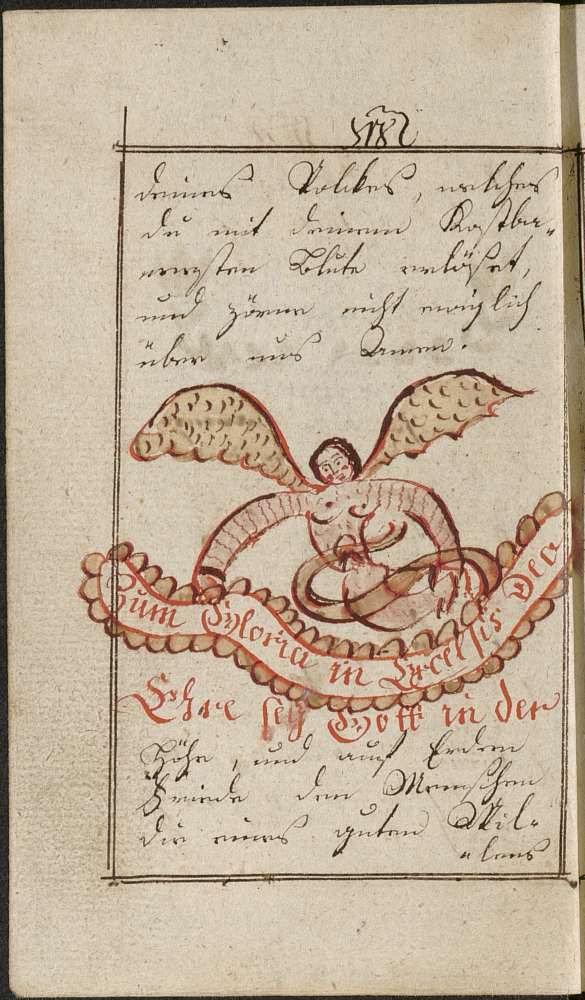 18
deines Volckes, welches
du mit deinem Kostba-
uresten Blute erlöset,
und zörne nicht ewiglich
über uns Amen.
Zum Gloria in Excelsis Deo
Ehre sey Gott in der
Höhe, und auf Erden
Friede den Menschen
die eines guten Wil-
lens